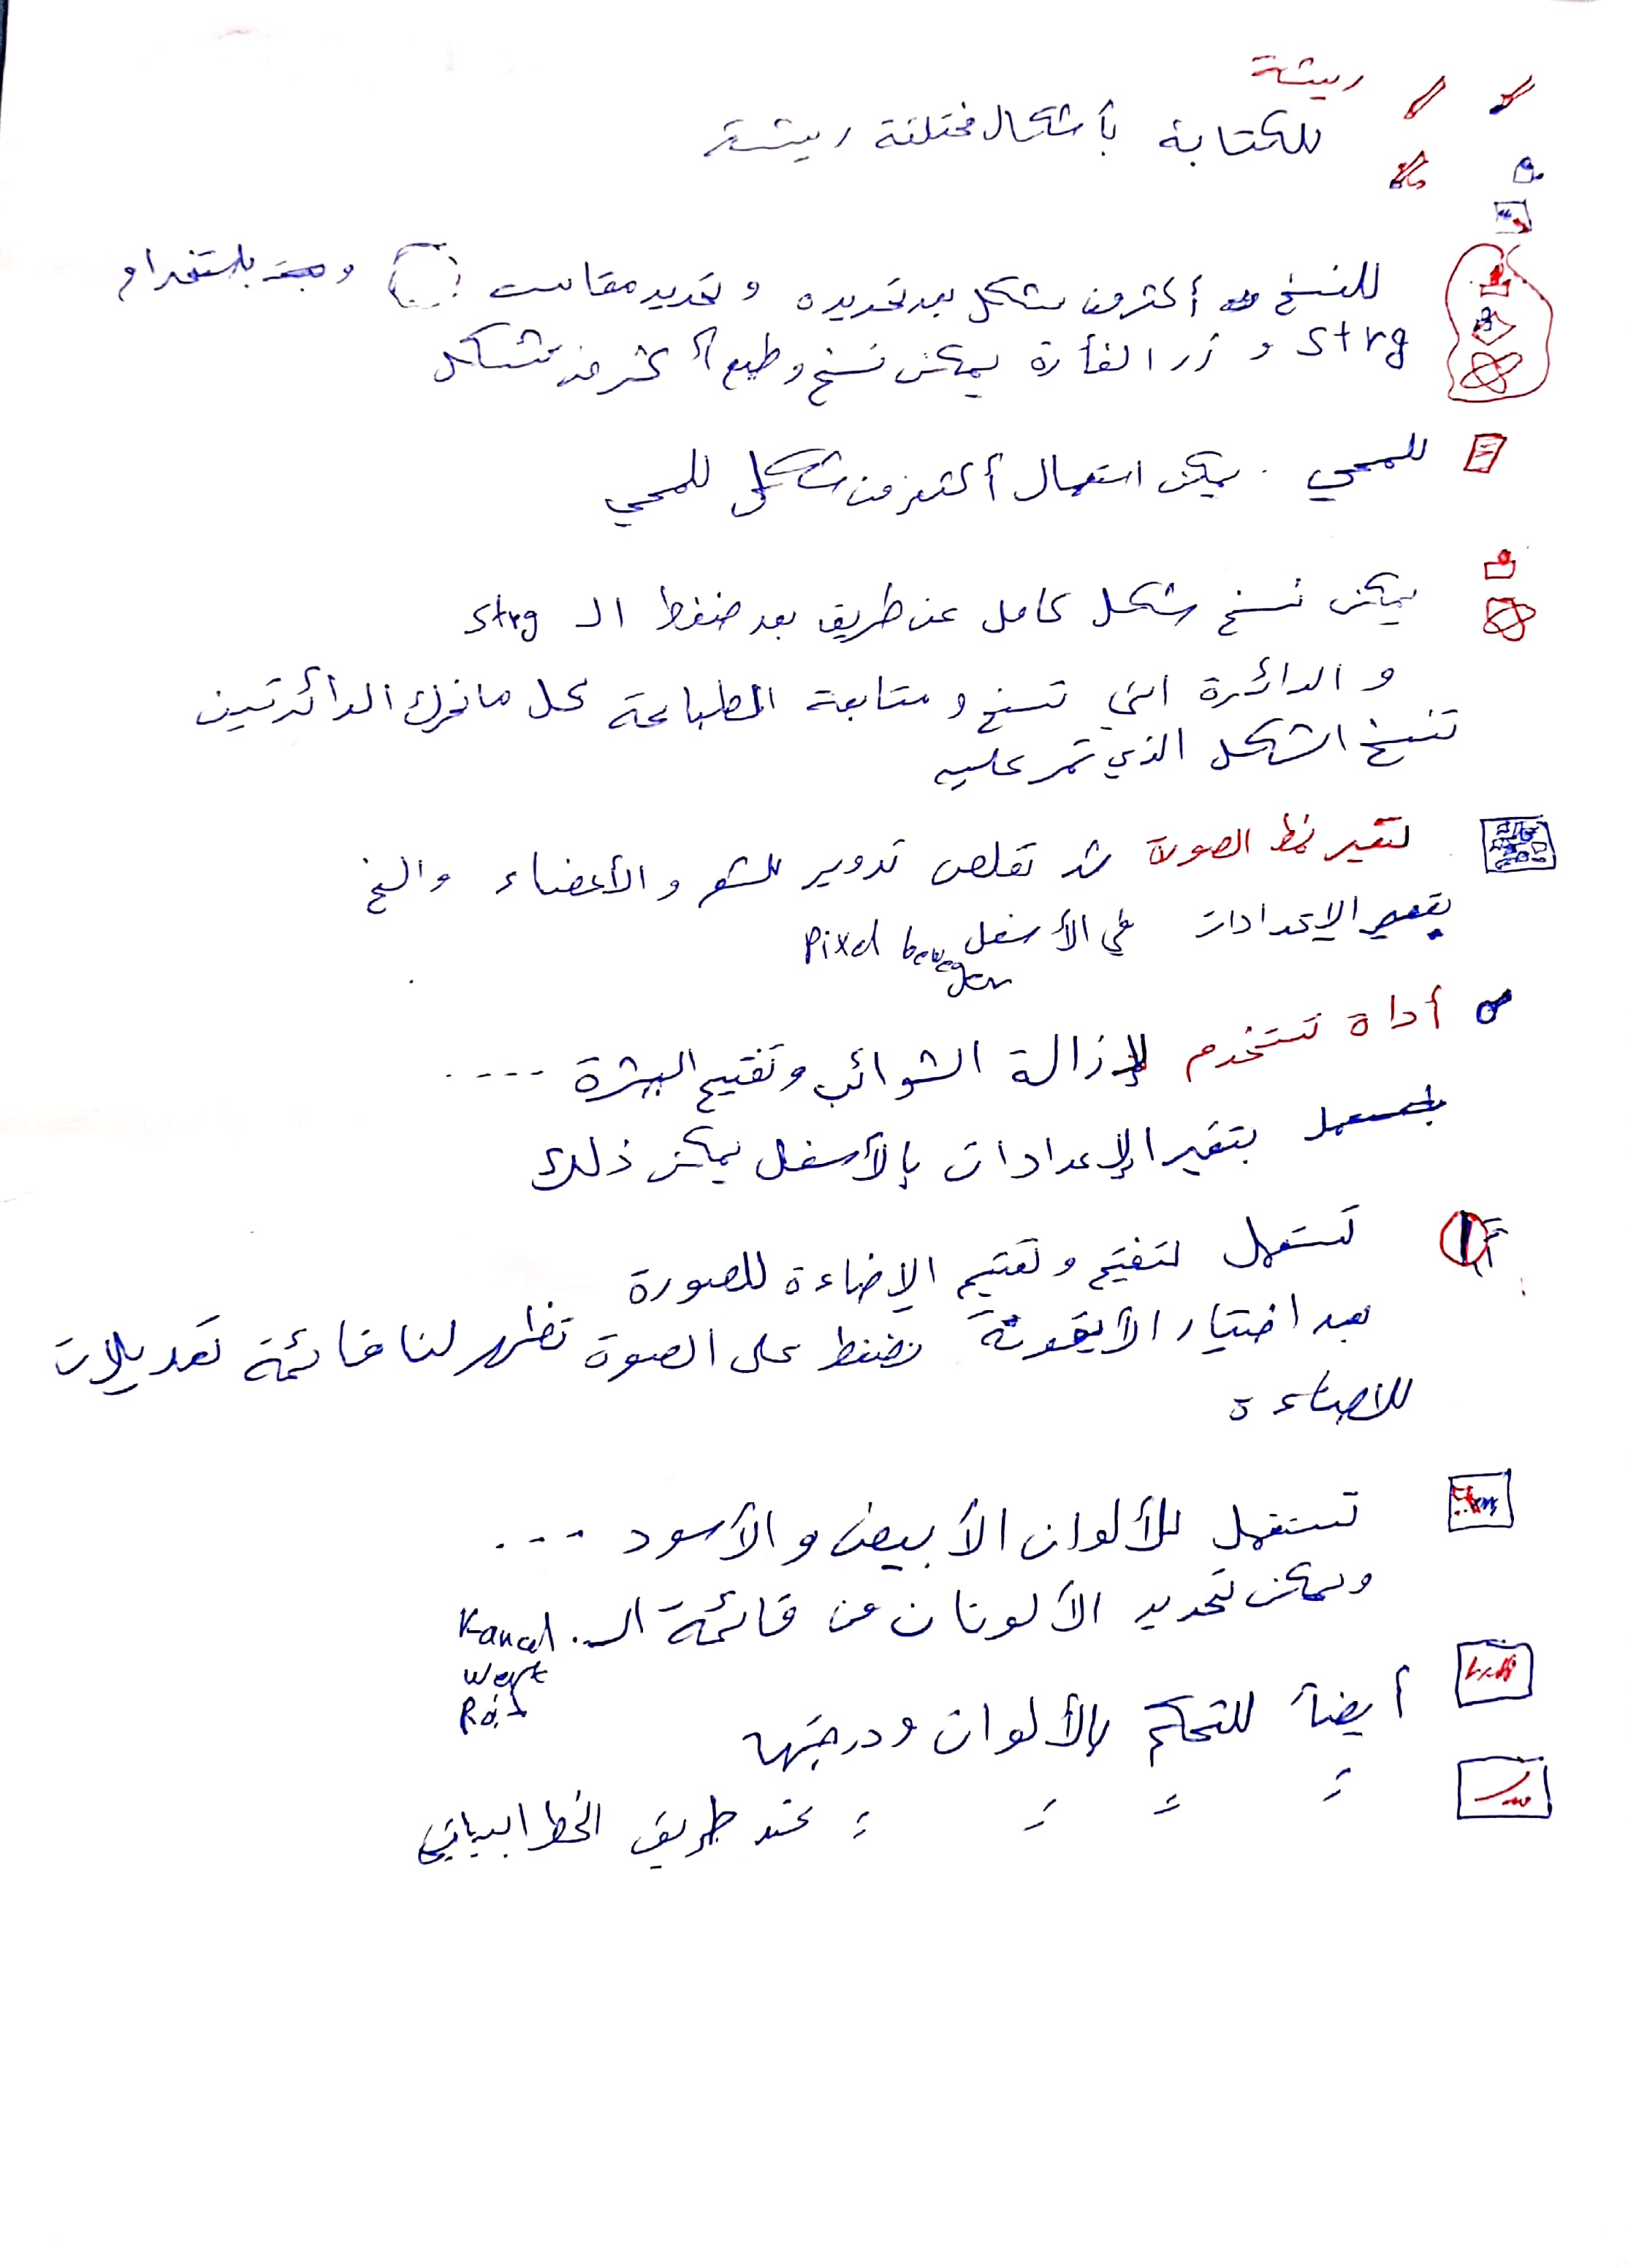 ريشة
للكتابة بأشكال مختلفة ريشة
للنسخ أكثر من شكل بعد تحديده و تحديد مقاست و باستخدام
Strg و زر الفأرة يمكن نسخ و طبع أكثر من شكل
للمحي . يمكن استعمال أكثر من شكل للمحي
يمكن نسخ شكل كامل عن طريق بعد ضغط الـ Strg
و الدائرة التي تنسخ و متابعة الطباعة كل ما تحرك الدائرتين
تنسخ الشكل الذي تمر عليه
لتغير نمط الصورة شد تقلص تدوير للشعر و الأعضاء والخ
بتغيير الإعدادات في الأسفل Pixel bewegen
أداة تستخدم لإزالة الشوائب وتفتيح البشرة ....
بتغير الإعدادات بالأسفل يمكن ذلك
تستعمل لتفتيح و تعتيم الإضاءة للصورة
بعد اختيار الأيقونة نضغط على الصورة تظهر لنا قائمة تعديلات
للاضاءة
تستعمل للألوان الأبيض و الأسود ...
ويمكن تحديد الألونان من قائمة الـ Kanal
Wert
Rot
أيضاً للتحكم بالألوان ودرجتها
= = = = عند طريق الخط البياني